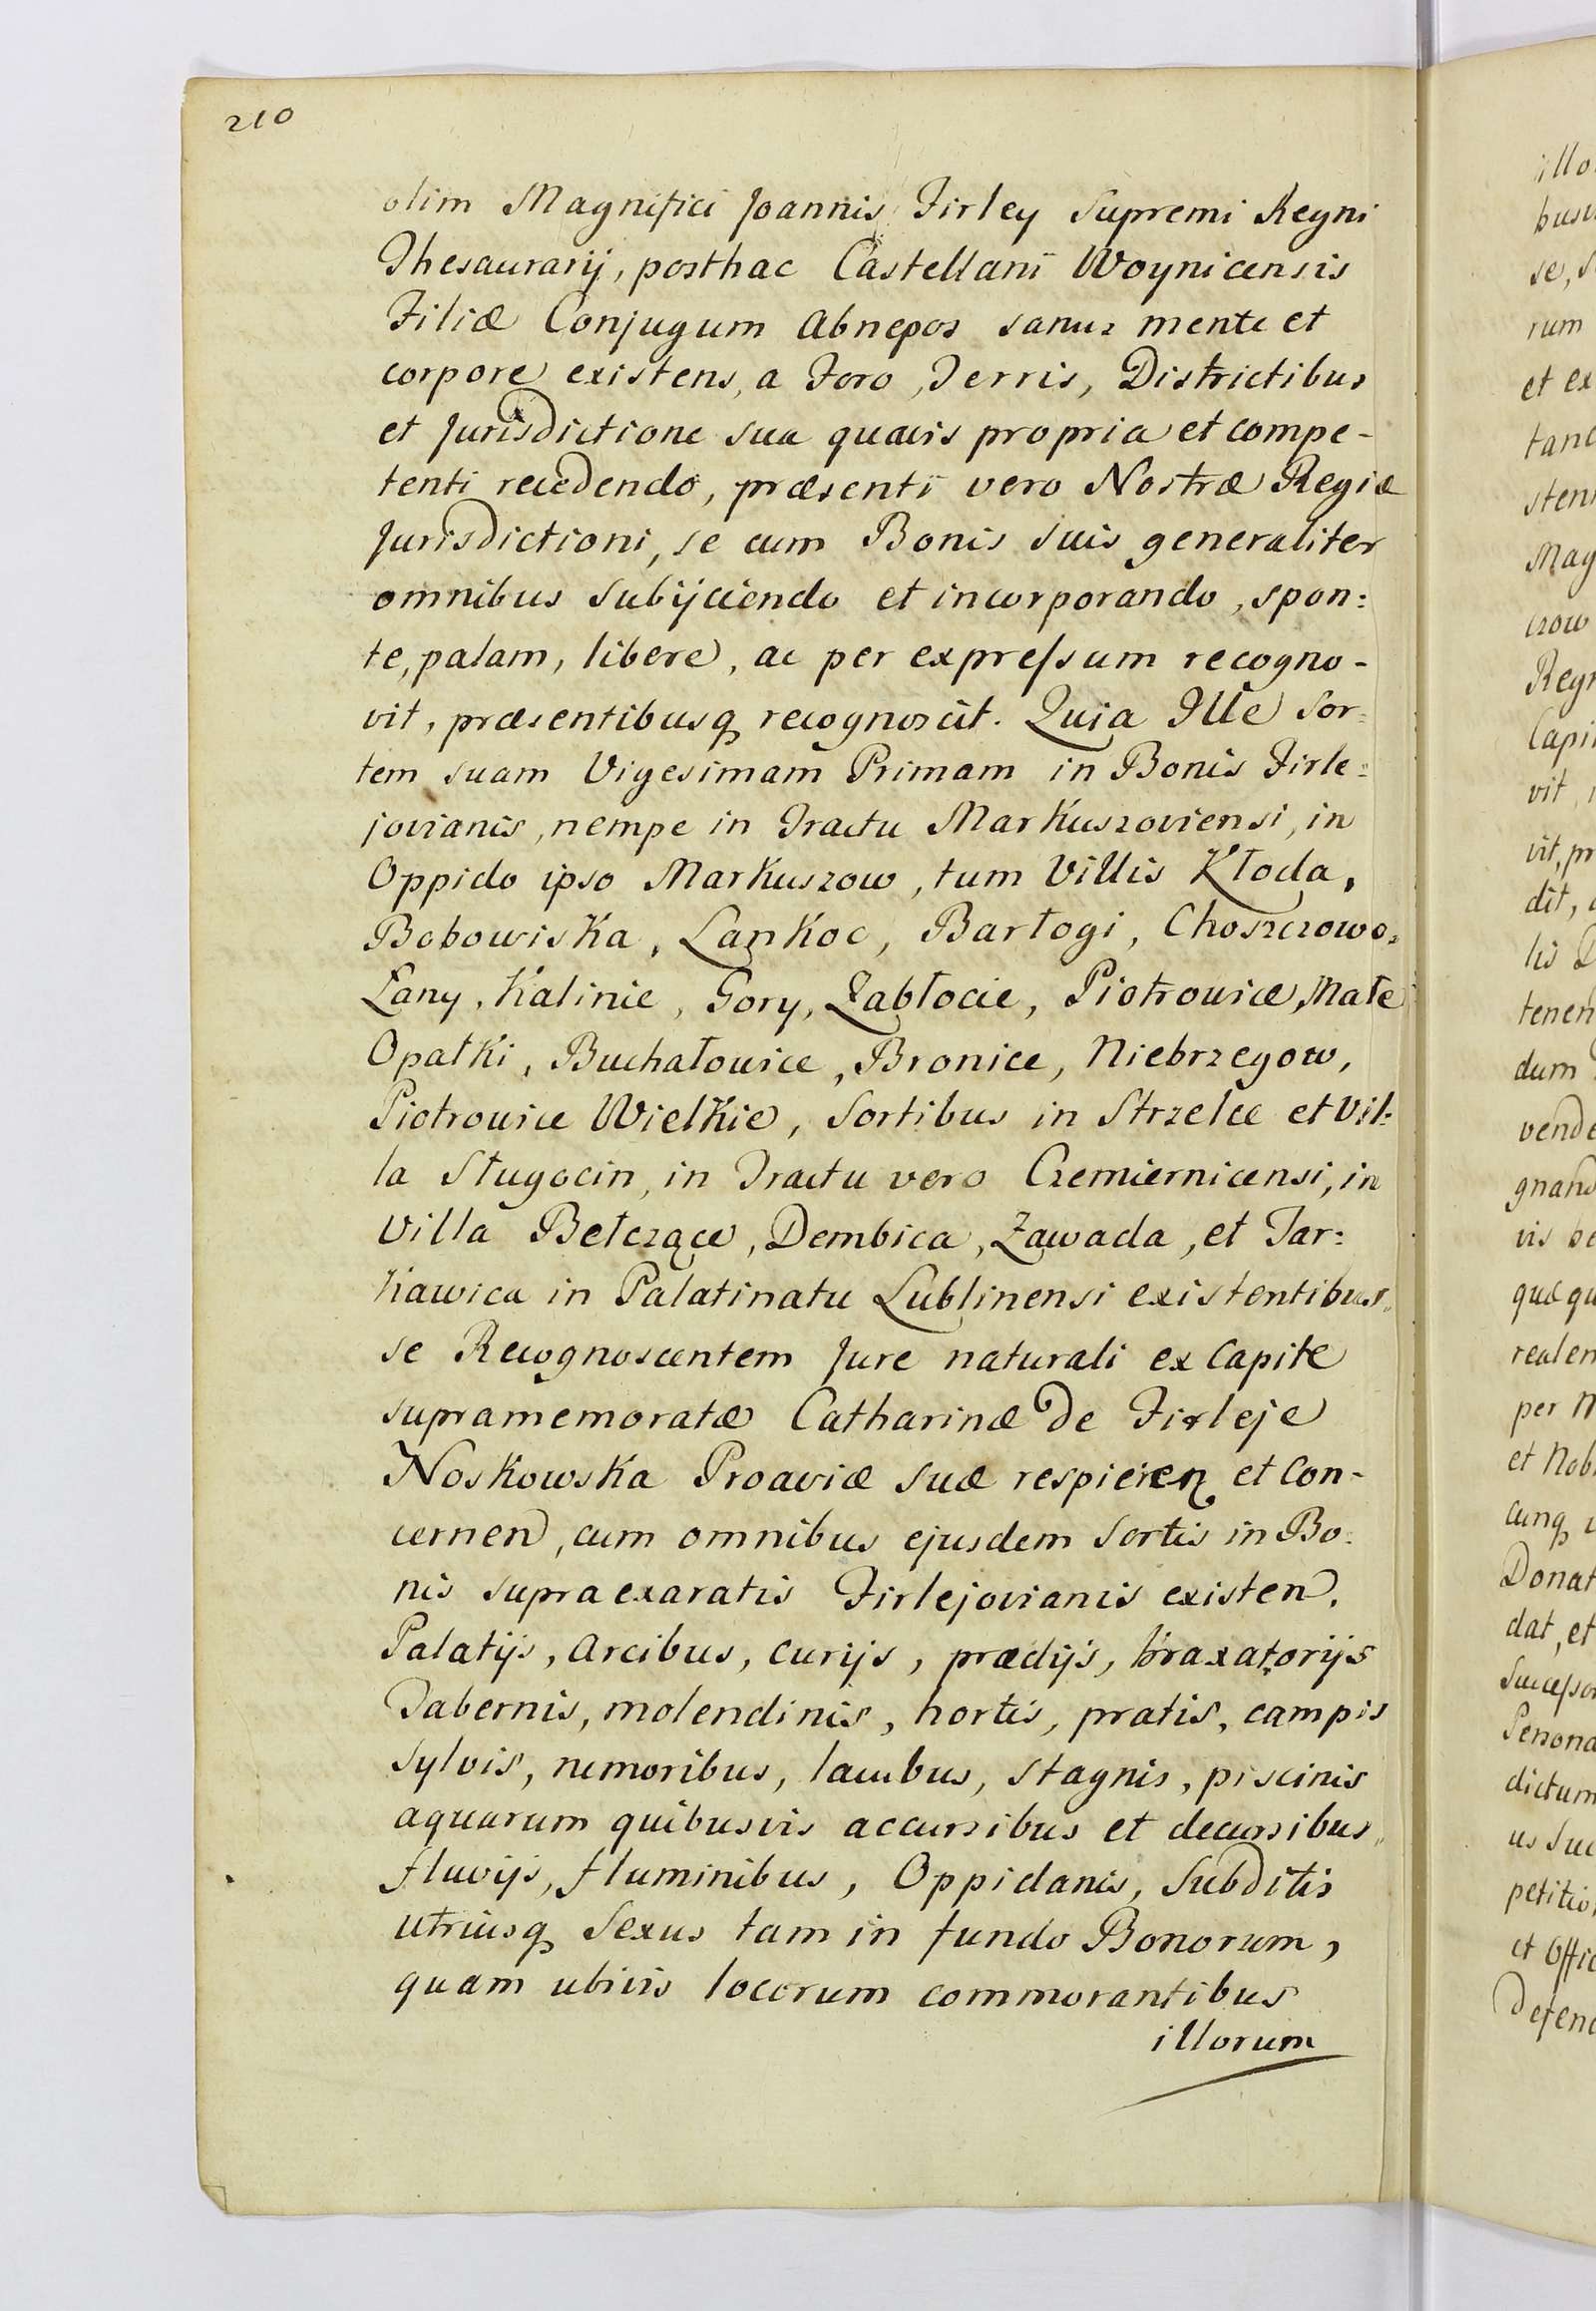 210
olim Magnifici Joannis Firley Supremi Regni
Thesaurarij, posthac Castellani Woynicensis
Filiæ Conjugum Abnepos sanus mente et
corpore existens, a Foro, Terris, Districtibus
et Jurisdictione sua quavis propria et compe-
tenti recedendo, præsenti vero Nostræ Regiæ
Jurisdictioni, se cum Bonis suis generaliter
omnibus subijciendo et incorporando, spon:
te, palam, libere, ac per expreſsum recogno-
vit, præsentibusq recognoscit. Quia Ille Sor:
tem suam Vigesimam Primam in Bonis Firle:
jovianis, nempe in Tractu Markuszoviensi, in
Oppido ipso Markuszow, tum Villis Kłoda,
Bobowiska, Lankoc, Bartogi, Choszczowo,
Łany, Kalinie, Gory, Zabłocie, Piotrowice, Małe
Opatki, Buchałowice, Bronice, Niebrzegow,
Piotrowice Wielkie, Sortibus in Strzelce et Vil:
la Sługocin, in Tractu vero Czemiernicensi, in
Villa Bełczące, Dembica, Zawada, et Tar:
kawica in Palatinatu Lublinensi existentibus,
se Recognoscentem Jure naturali ex Capite
supramemoratæ Catharinæ de Firleje
Noskowska Proaviæ suæ respicien et Con-
cernen, cum omnibus ejusdem Sortis in Bo:
nis supra exaratis Firlejovianis existen.
Palatijs, Arcibus, Curijs, prædijs, braxatorijs
Tabernis, molendinis, hortis, pratis, campis
Sylvis, nemoribus, lacubus, stagnis, piscinis
aquarum quibusvis accursibus et decursibus,
fluvijs, fluminibus, Oppidanis, Subditis
utriusq Sexus tam in fundo Bonorum,
quam ubivis locorum commorantibus
illorum